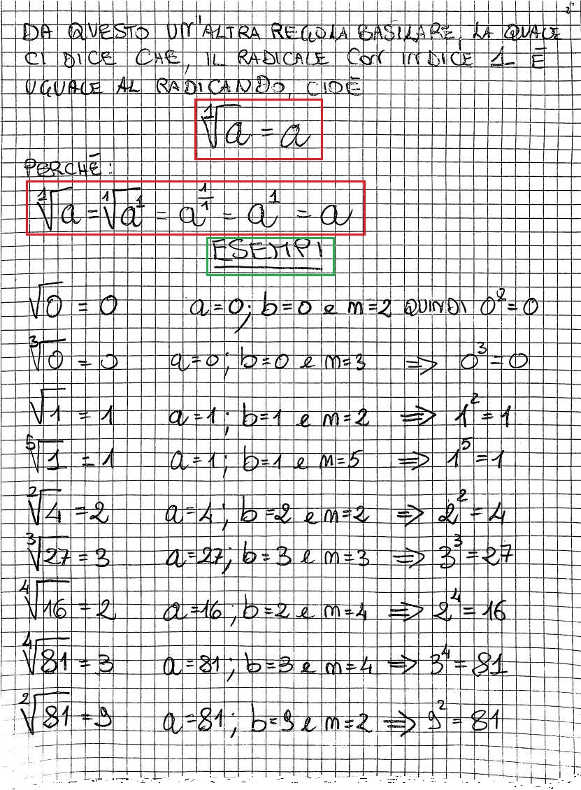 2
DA QUESTO UN'ALTRA REGOLA BASILARE, LA QUALE
CI DICE CHE, IL RADICALE CON INDICE 1 È
UGUALE AL RADICANDO, CIOÈ
¹√a = a
PERCHÉ:
¹√a = ¹√a¹ = a^(1/1) = a¹ = a
ESEMPI
√0 = 0 a=0; b=0 e m=2 QUINDI 0²=0
³√0 = 0 a=0; b=0 e m=3 => 0³=0
√1 = 1 a=1; b=1 e m=2 => 1²=1
⁵√1 = 1 a=1; b=1 e m=5 => 1⁵=1
²√4 = 2 a=4; b=2 e m=2 => 2²=4
³√27 = 3 a=27; b=3 e m=3 => 3³=27
⁴√16 = 2 a=16; b=2 e m=4 => 2⁴=16
⁴√81 = 3 a=81; b=3 e m=4 => 3⁴=81
²√81 = 9 a=81; b=9 e m=2 => 9²=81